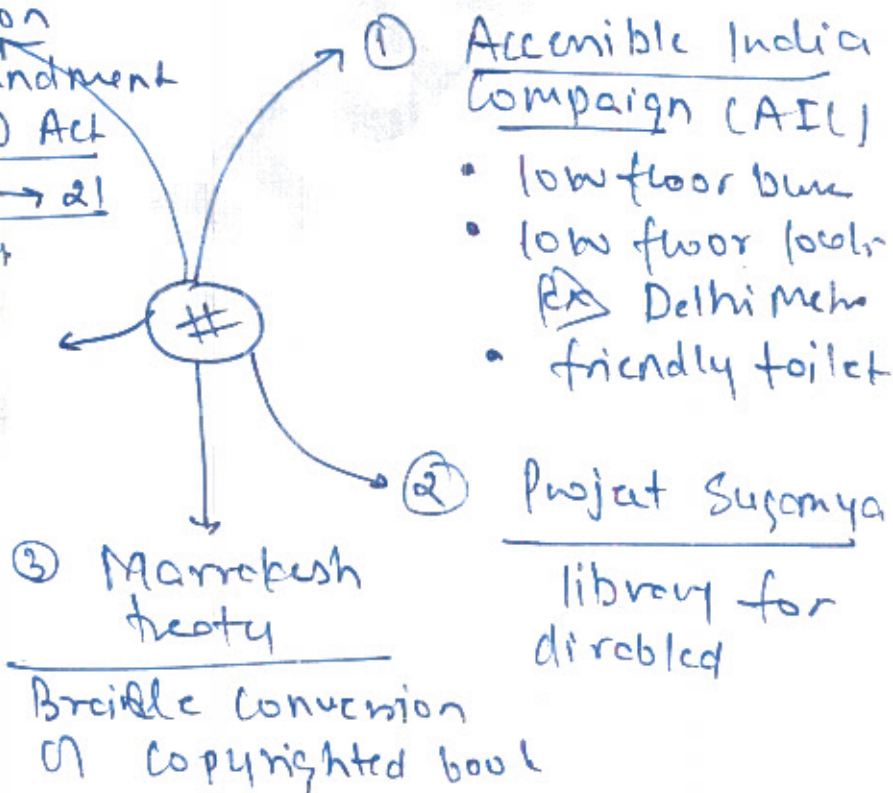 on
ndment
) Act
→ 21
① Accenible India
Compaign (AIC)
• low floor bus
• low floor
Ex Delhi Metro
• friendly toilet
#
② Project Sugamya
library for
disabled
③ Marrakesh
treaty
Braille Conversion
of copyrighted book